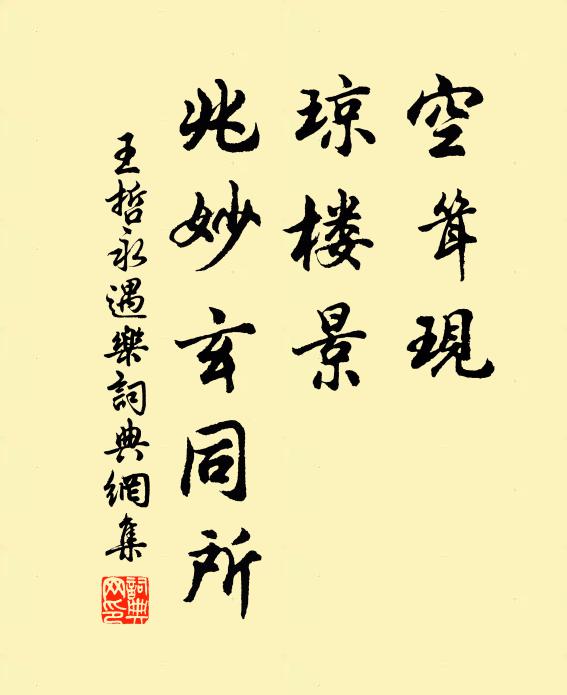 空耸現
琼楼景
兆妙玄同所
王哲永遇樂詞典網集
詞典网印